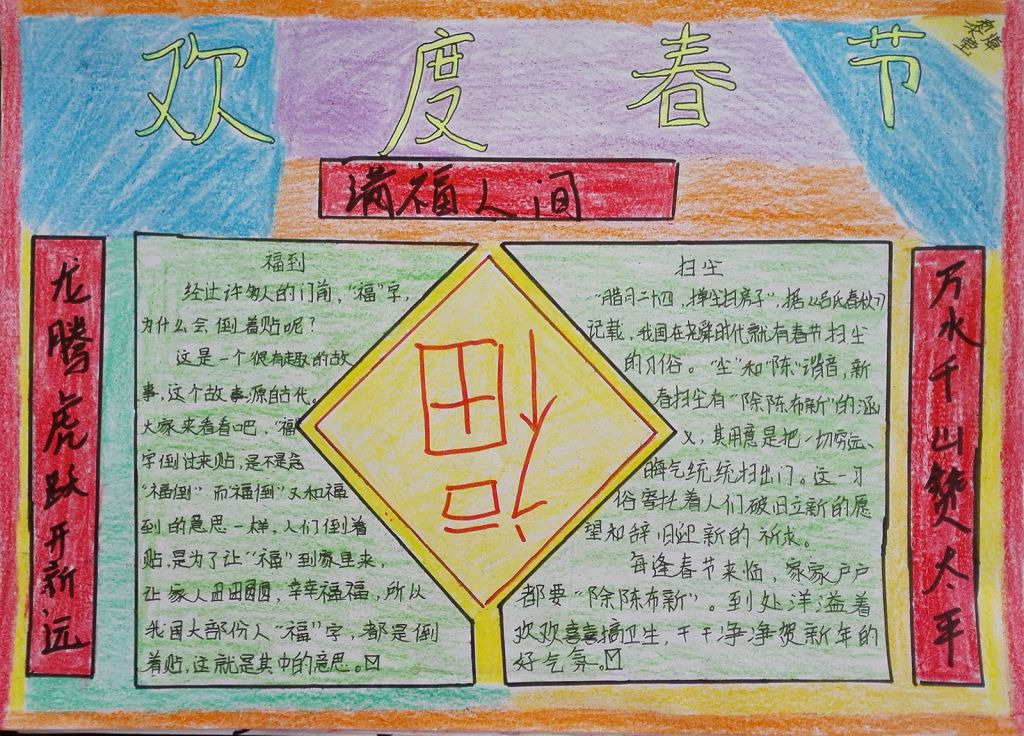 欢度春节
满福人间
龙腾虎跃开新远
福到
经过许多人的门前，“福”字，
为什么会倒着贴呢？
这是一个很有趣的故
事，这个故事源自古代。
大家来看看吧，“福”
字倒过来贴，是不是念
“福倒”而“福倒”又和福
到的意思一样，人们倒着
贴，是为了让“福”到家里来，
让家人团团圆圆，幸幸福福，所以
我国大部份人“福”字，都是倒
着贴，这就是其中的意思。
福
扫尘
“腊月二十四，掸尘扫房子”，据《吕氏春秋》
记载，我国在尧舜时代就有春节扫尘
的习俗。“尘”和“陈”谐音，新
春扫尘有“除陈布新”的涵
义，其用意是把一切穷运、
晦气统统扫出门。这一习
俗寄托着人们破旧立新的愿
望和辞旧迎新的祈求。
每逢春节来临，家家户户
都要“除陈布新”。到处洋溢着
欢欢喜喜搞卫生，干干净净贺新年的
好气氛。
万水千山赞太平